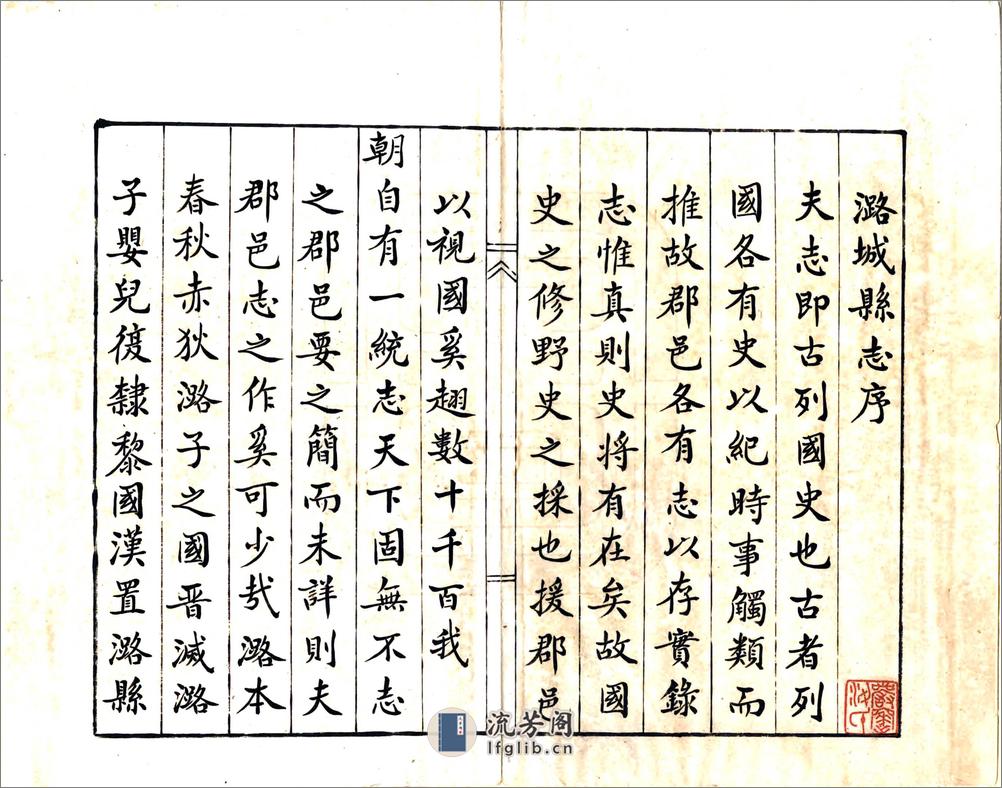 潞城縣志序
夫志即古列國史也古者列
國各有史以紀時事觸類而
推故郡邑各有志以存實錄
志惟真則史將有在矣故國
史之修野史之採也援郡邑
以視國奚趐數十千百我
朝自有一統志天下固無不志
之郡邑要之簡而未詳則夫
郡邑志之作奚可少哉潞本
春秋赤狄潞子之國晋滅潞
子嬰兒復隸黎國漢置潞縣
流芳阁
lfglib.cn